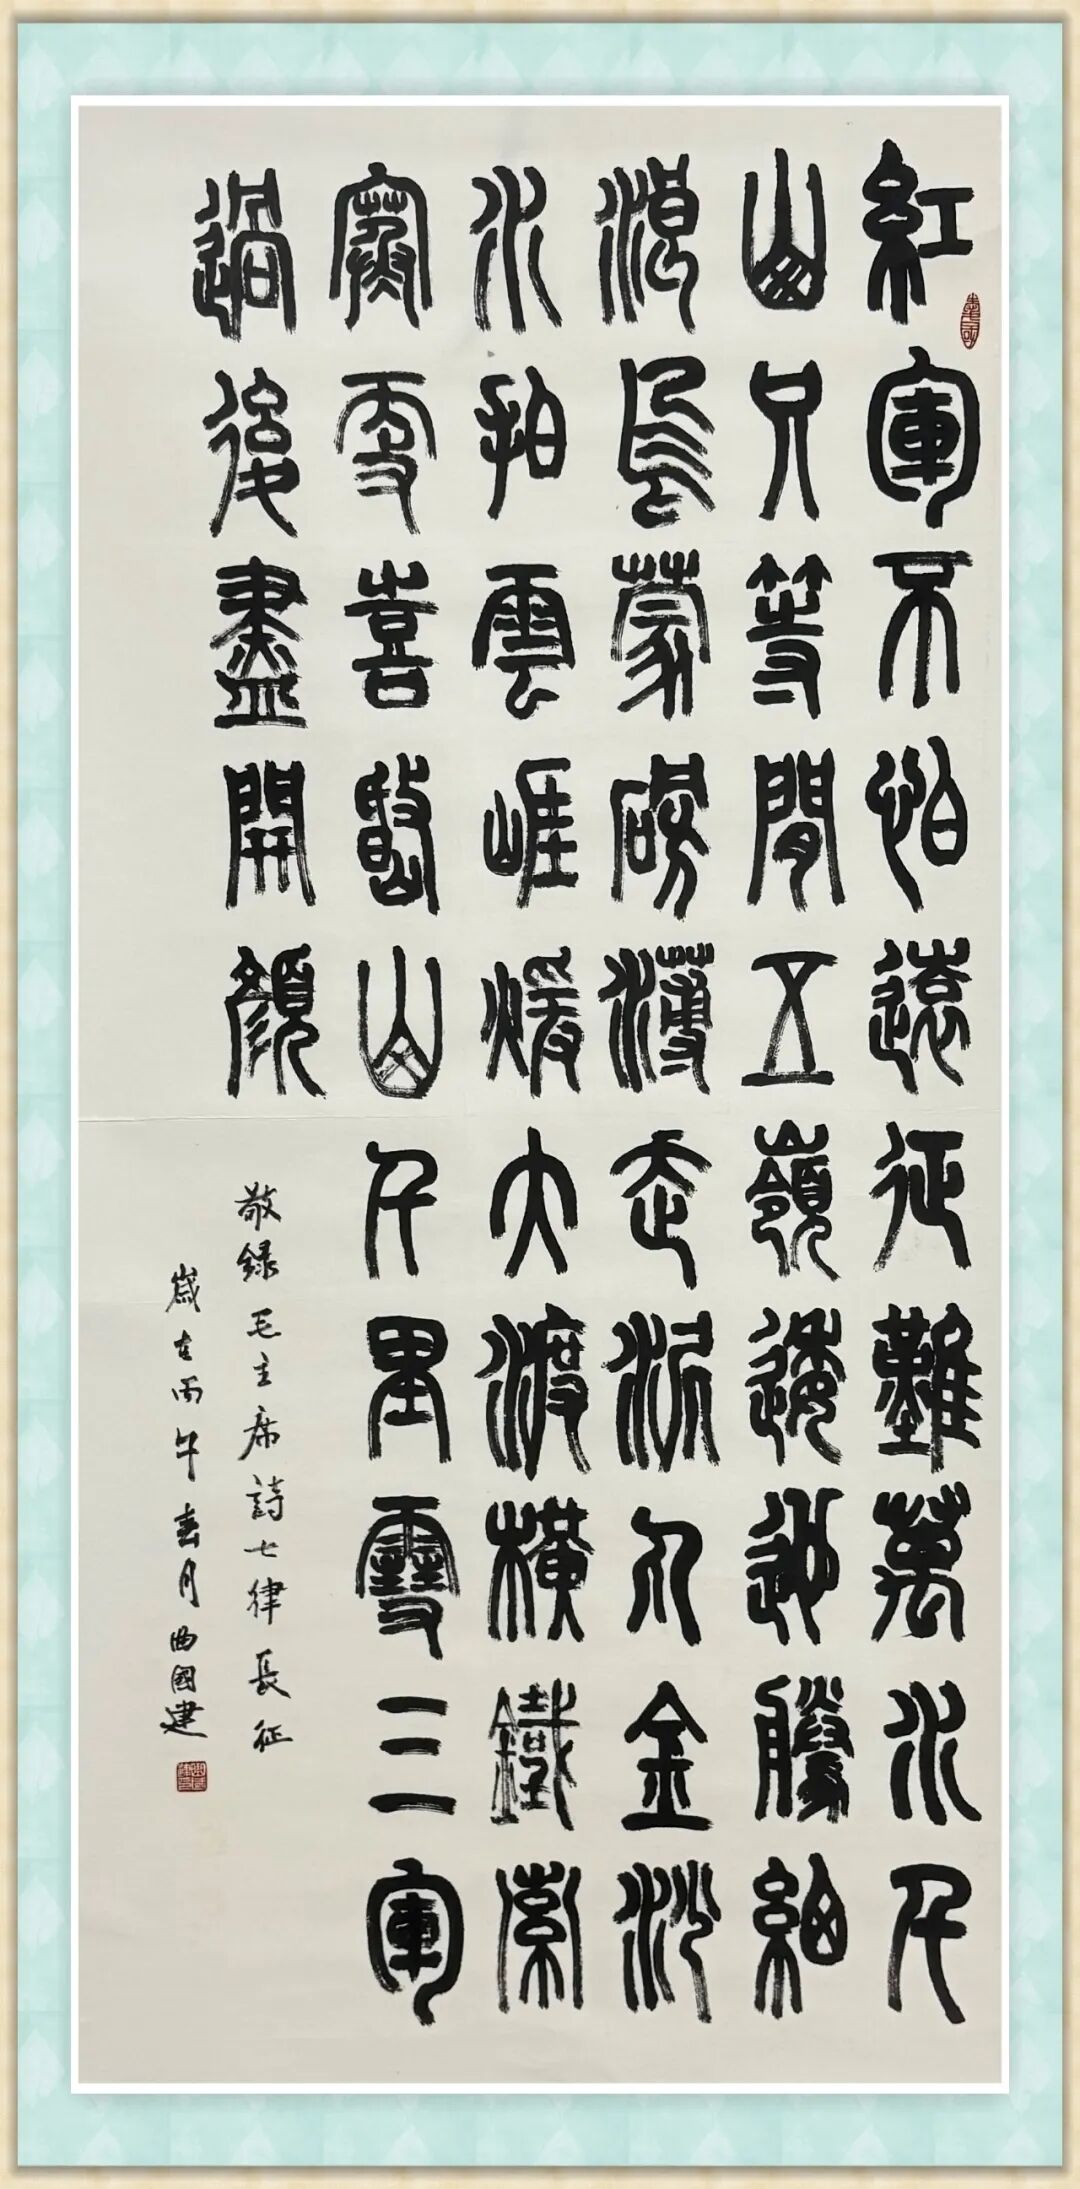 紅軍不怕遠征難萬水千
山只等閒五嶺逶迤騰細
浪烏蒙磅薄走泥丸金沙
水拍雲崖暖大渡橫鐵索
寒更喜岷山千里雪三軍
過後盡開顏
敬録毛主席詩七律長征
歲在丙午春月曲國建